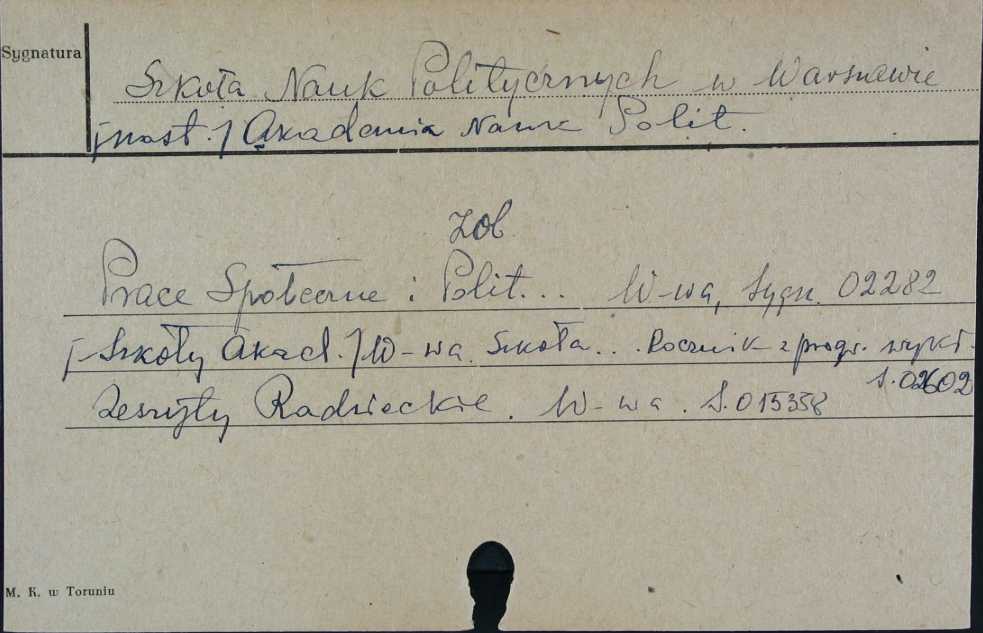 Sygnatura
Szkoła Nauk Politycznych w Warszawie
[nast.] Akademia Nauk Polit.
Zob
Prace Społeczne i Polit... W-wa, Sygn. 02282
[Szkoły Akad.] W-wa Szkoła... Rocznik z progr. wykł.
S. 02602
Zeszyty Radzieckie. W-wa. S. 015358
M. K. w Toruniu